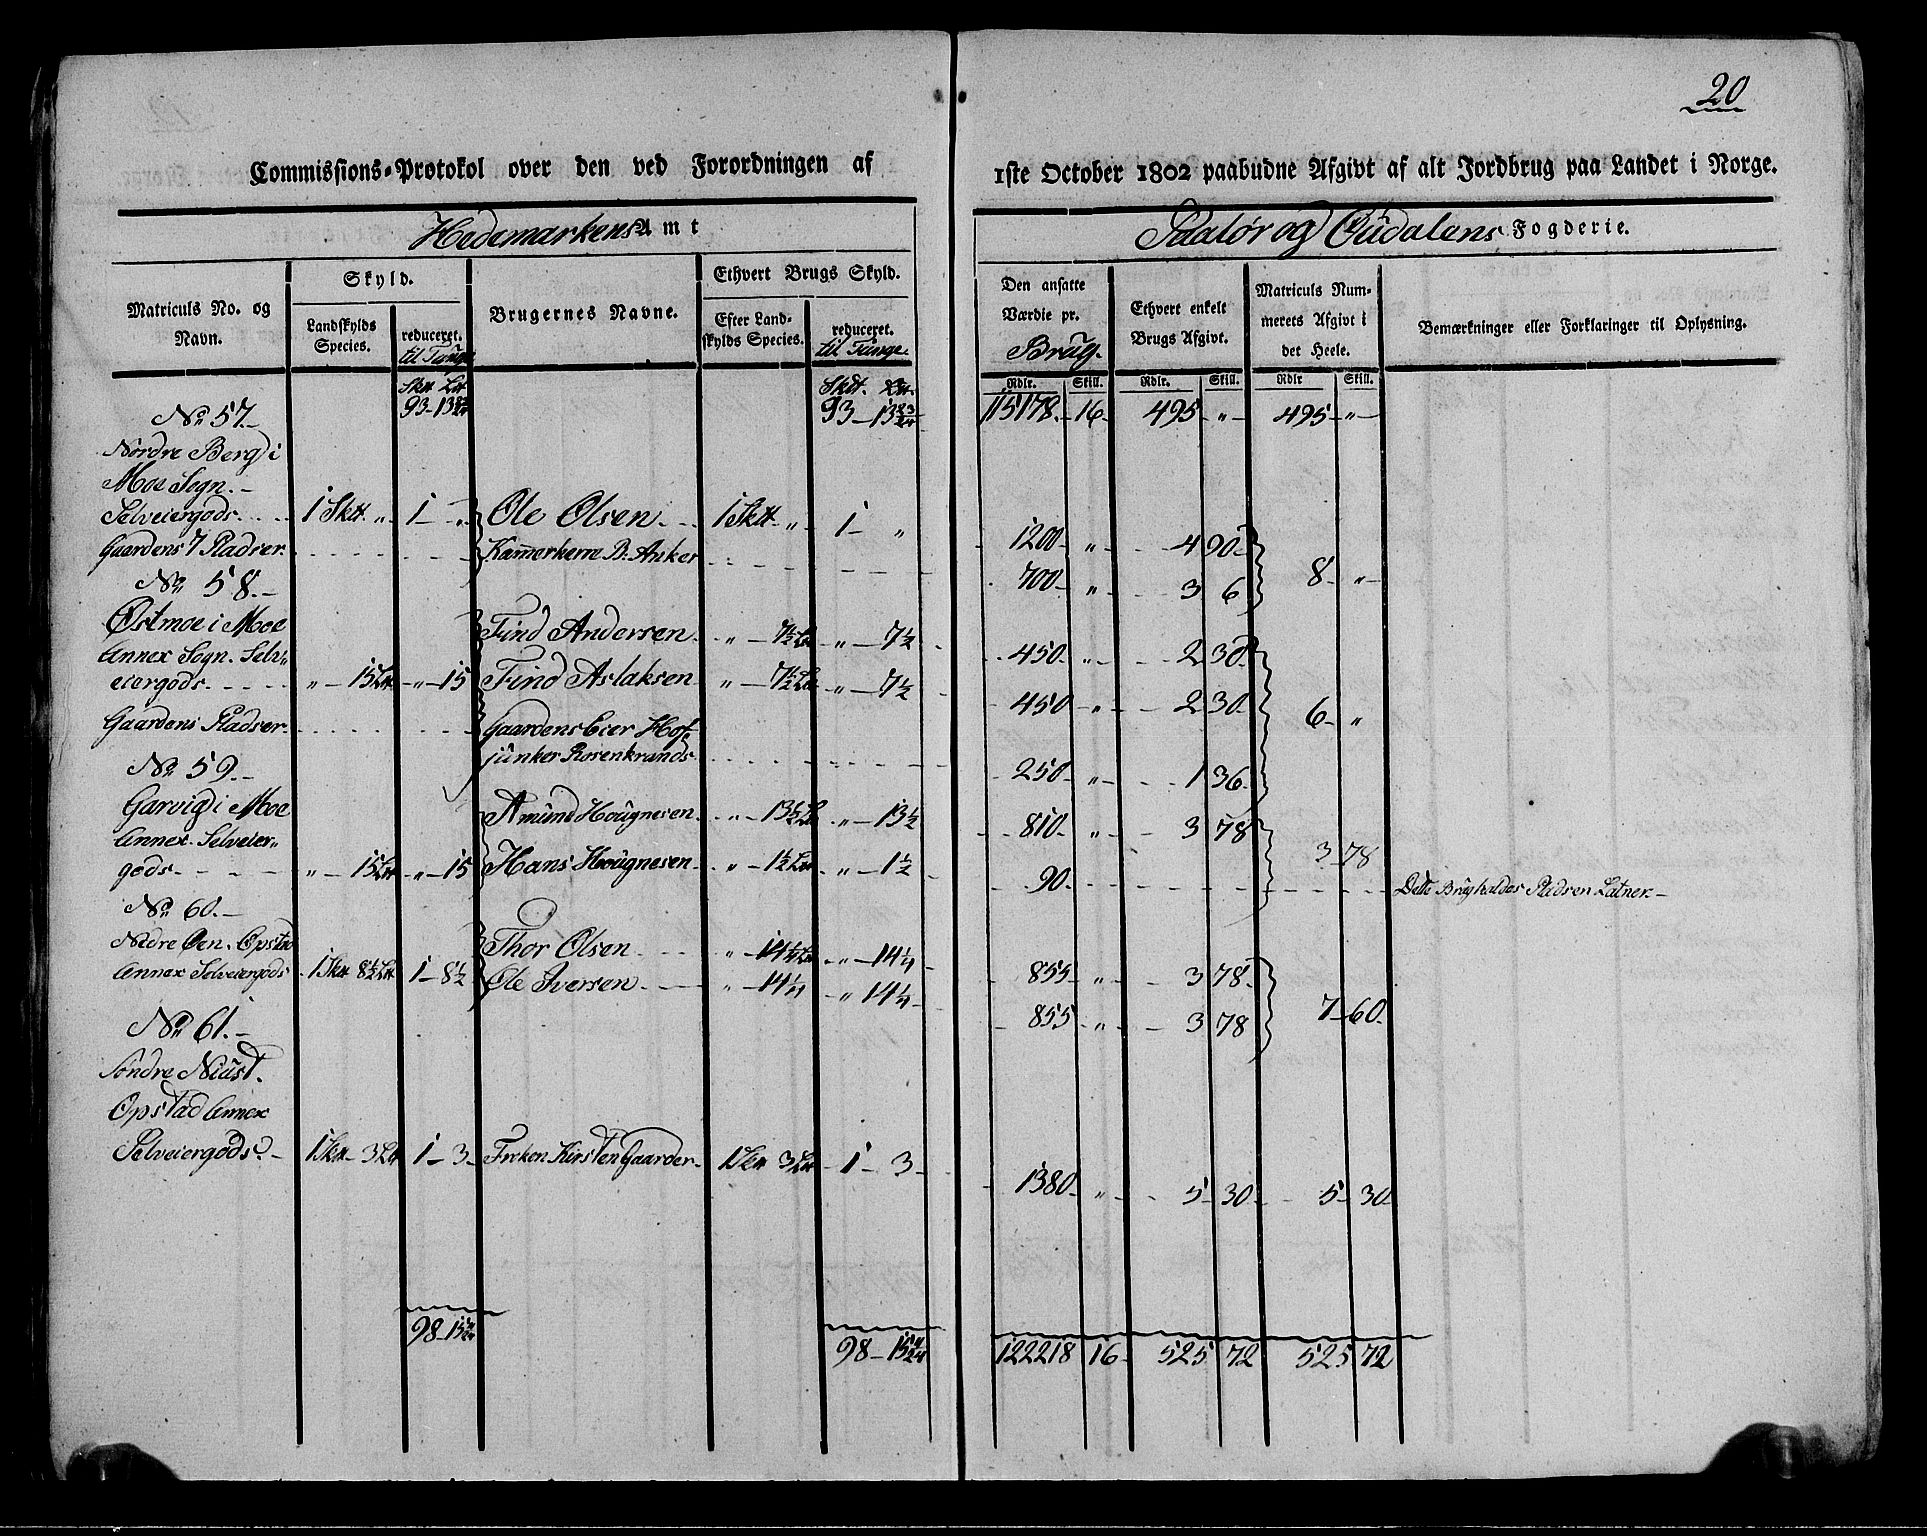 20
Commissions-Protokol over den ved Forordningen af 1ste October 1802 paabudne Afgivt af alt Jordbrug paa Landet i Norge.
Hedemarkens Amt
Soelør og Oudalens Fogderie.
Matriculs No. og Navn.
Skyld.
Landskylds Species.
reduceret. til Tunge
Brugernes Navne.
Ethvert Brugs Skyld.
Efter Landskylds Species.
reduceret. til Tunge.
Den ansatte Værdie pr. Brug.
Ethvert enkelt Brugs Afgivt.
Matriculs Nummerets Afgivt i det Heele.
Bemærkninger eller Forklaringer til Oplysning.
Sktt Ltt Sktt. Ltt. Rdlr. Skill. Rdlr. Skill. Rdlr Skill.
93 – 13 23/24 93 – 13 23/24 115178. 16 495 „ 495 „
No 57.
Nordre Berg i
Moe Sogn.
Selveiergods. 1 Sktt „ 1 „ Ole Olsen 1 Sktt „ 1 „ 1200 „ 4 90
Gaardens 7 Pladser Kammerherre B. Anker 700 „ 3 6 8 „
No 58.
Østmoe i Moe Find Andersen „ 7½ Ltt „ 7½ 450 „ 2 30
Annex Sogn. Selv„
eiergods „ 15 Ltt „ 15 Find Aslaksen „ 7½ Ltt „ 7½ 450 „ 2 30 6 „
Gaardens Pladser Gaardens Eier Hof„
junker Rosenkrands 250 „ 1 36
No 59.
Garvig i Moe Amund Hougnesen „ 13½ Ltt „ 13½ 810 „ 3 78
Annex. Selveier„
gods „ 15 Ltt „ 15 Hans Hougnesen „ 1½ Ltt „ 1½ 90 3 78 Dette Brug holdes Pladsen
No 60.
Nedre Øen. Opstad Thor Olsen „ 14¼ Ltt „ 14¼ 855 „ 3 78
Annex Selveiergods 1 Sktt 8½ Ltt 1 – 8½ Ole Iversen „ 14¼ „ 14¼ 855 „ 3 78 7 60
No 61.
Søndre Niust.
Opstad Annex
Selveiergods. 1 Sktt 3 Ltt 1 – 3 Frøken Kirsten Gaarder 1 Sktt 3 Ltt 1 – 3 1380 „ 5 30 5 30
98 – 15 11/24 98 – 15 11/24 122218 16 525 72 525 72